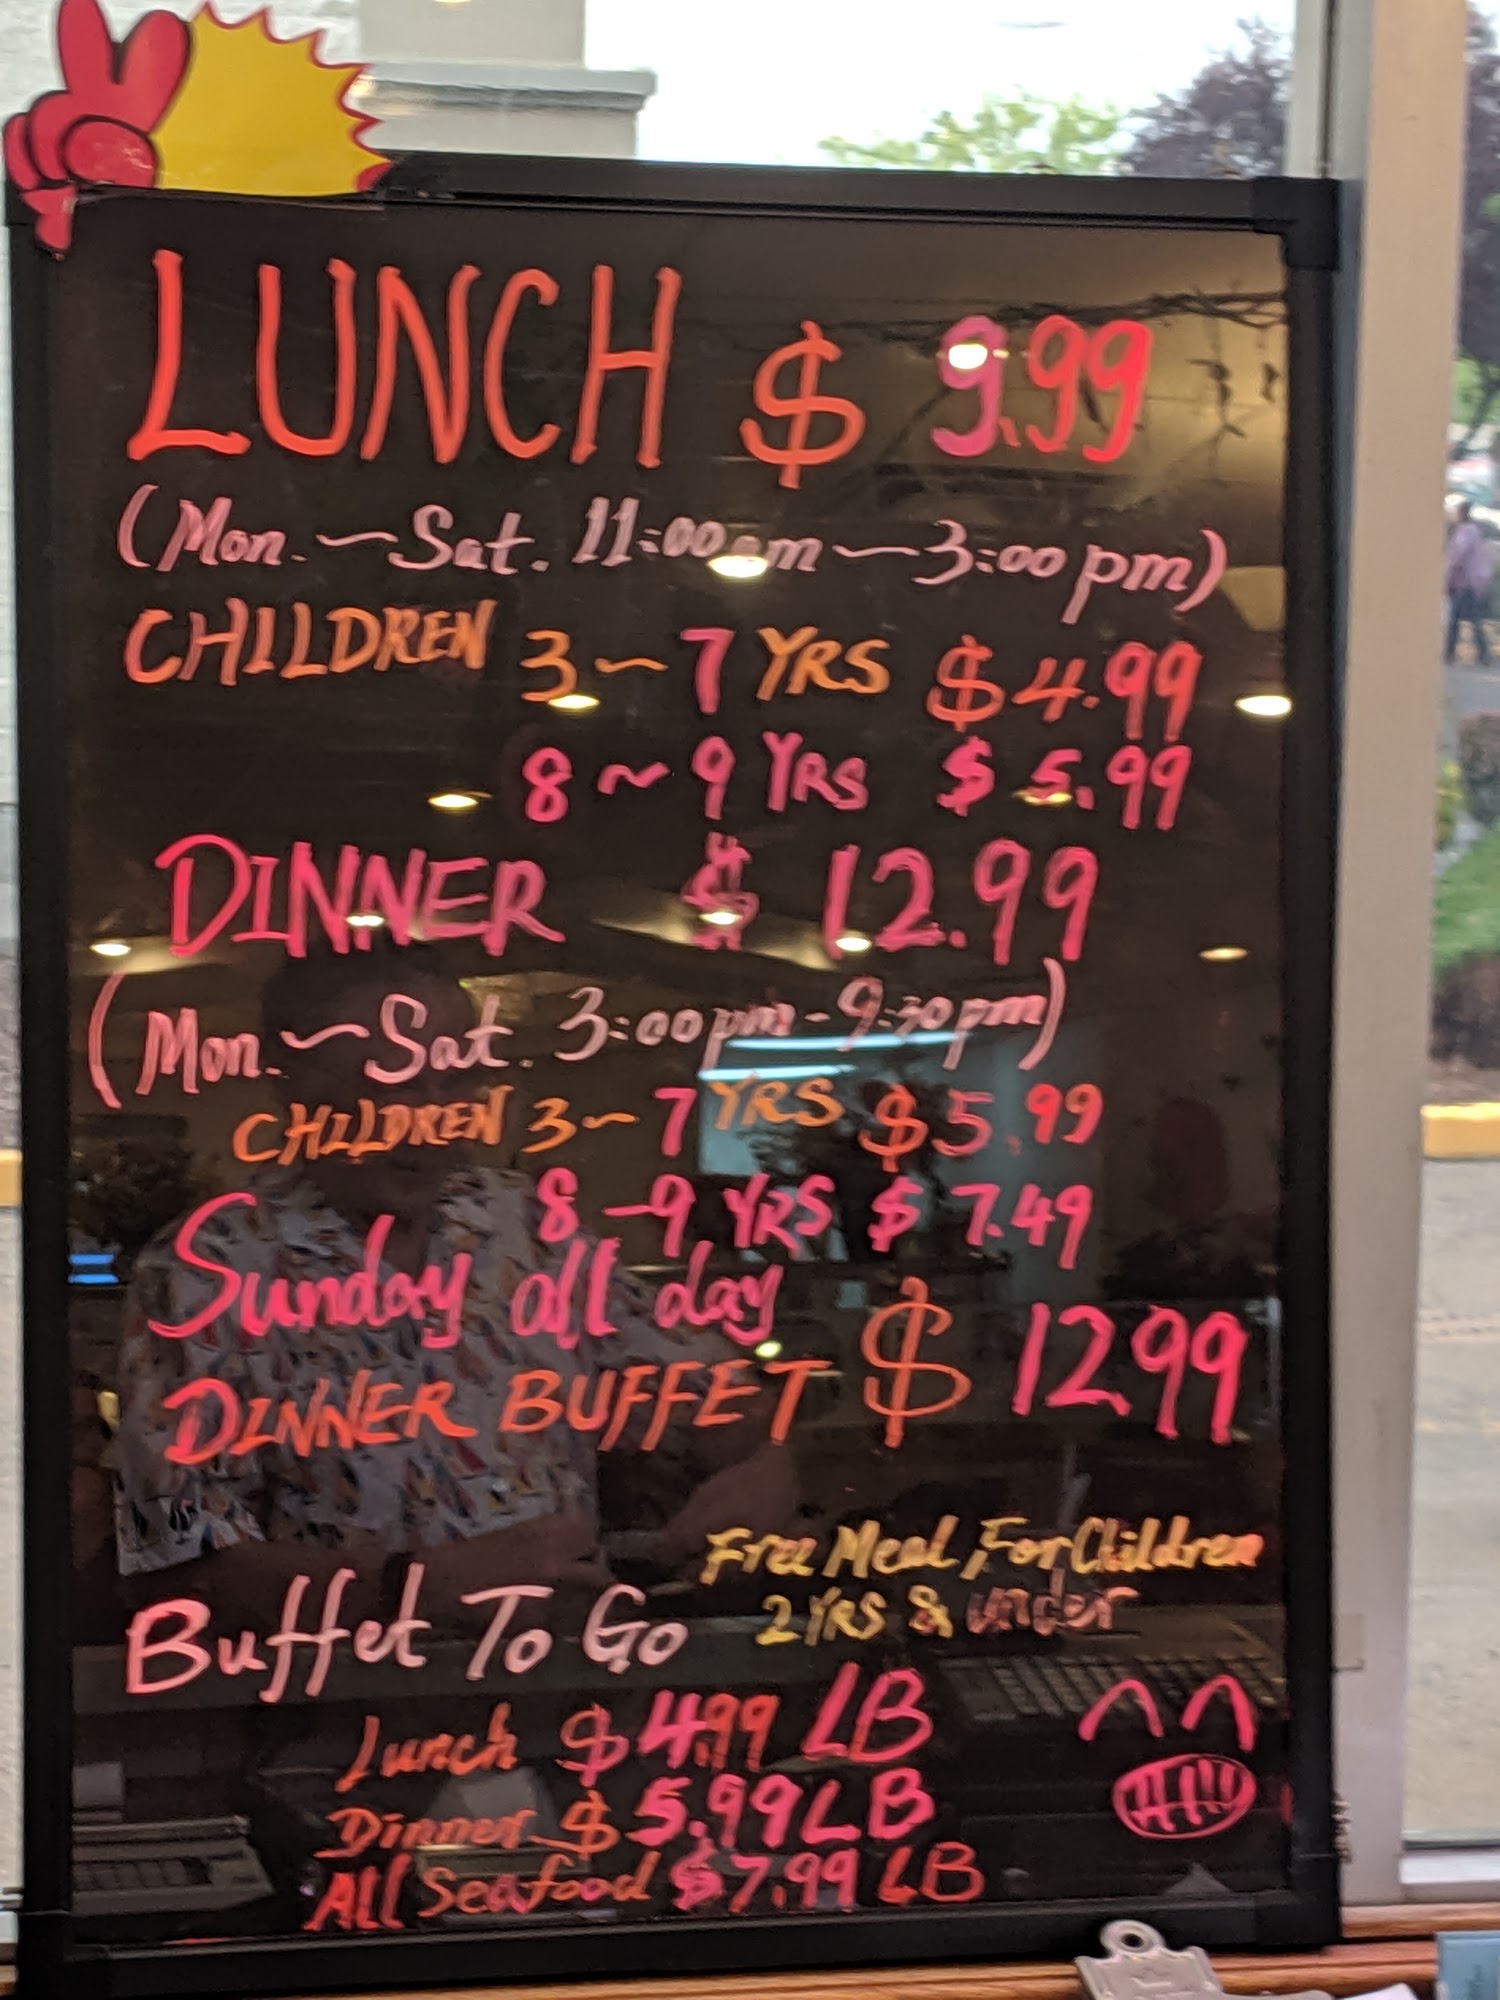 LUNCH $ 9.99
(Mon.~Sat. 11:00am~3:00pm)
CHILDREN 3~7 YRS $4.99
8~9 YRS $5.99
DINNER $ 12.99
(Mon.~Sat. 3:00pm-9:30pm)
CHILDREN 3~7 YRS $5.99
8-9 YRS $7.49
Sunday all day
DINNER BUFFET $ 12.99
Free Meal, For Children
2 YRS & under
Buffet To Go
Lunch $4.99 LB
Dinner $5.99 LB
All Seafood $7.99 LB